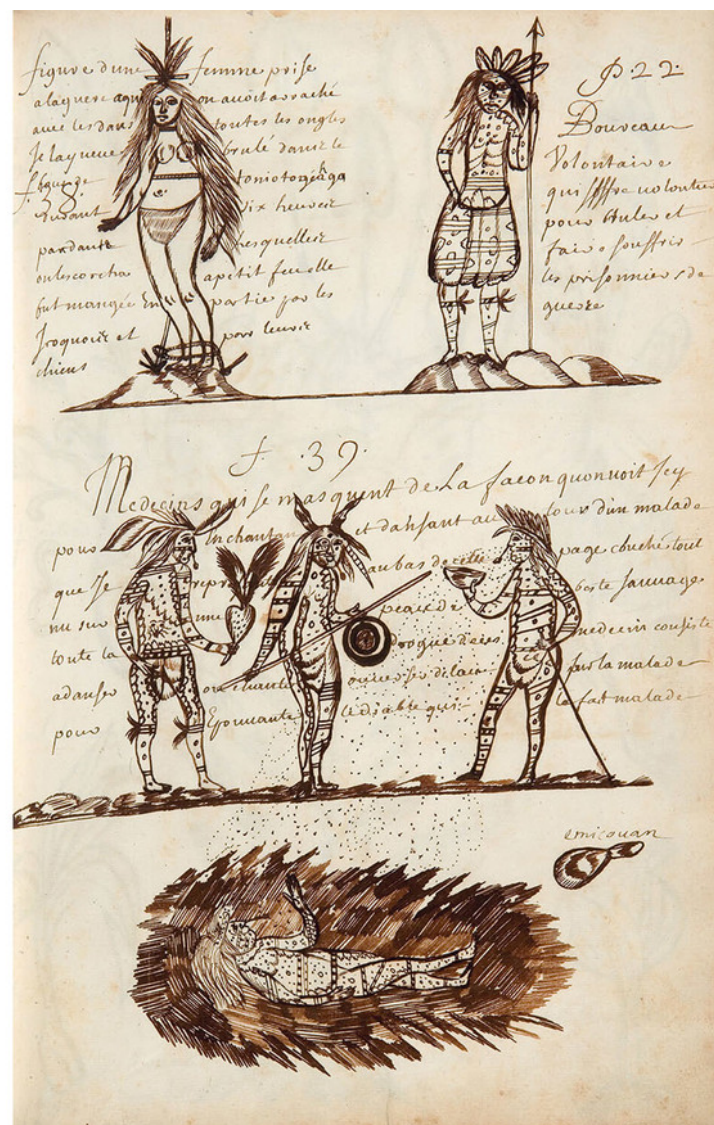 figure dune femme prise
alaguere aqui on avoit arraché
avec les dans toutes les ongles
Je lay veue brulé dans le
Toniotogéhaga
durant six heures
pandant lesquelles
on lescorcha apetit feu elle
fut mangée En partie par les
Iroquois et pars leurs
chiens
P. 22.
Bourreau
Volontaire
qui soffre volontie
pour bruler et
faire souffrir
les prisonniers de
guerre
f. 39.
Medecins qui se masquent de La facon quon voit Jcy
pour En chantan et dansant au tour dun malade
que Je represente au bas de cette page couché tout
nu sur une peau de beste sauuage
toute la drogue de ces medecins consiste
adanser ou chanter sur la malade
pour Epouuanter le diable qui le fait malade
emicouan